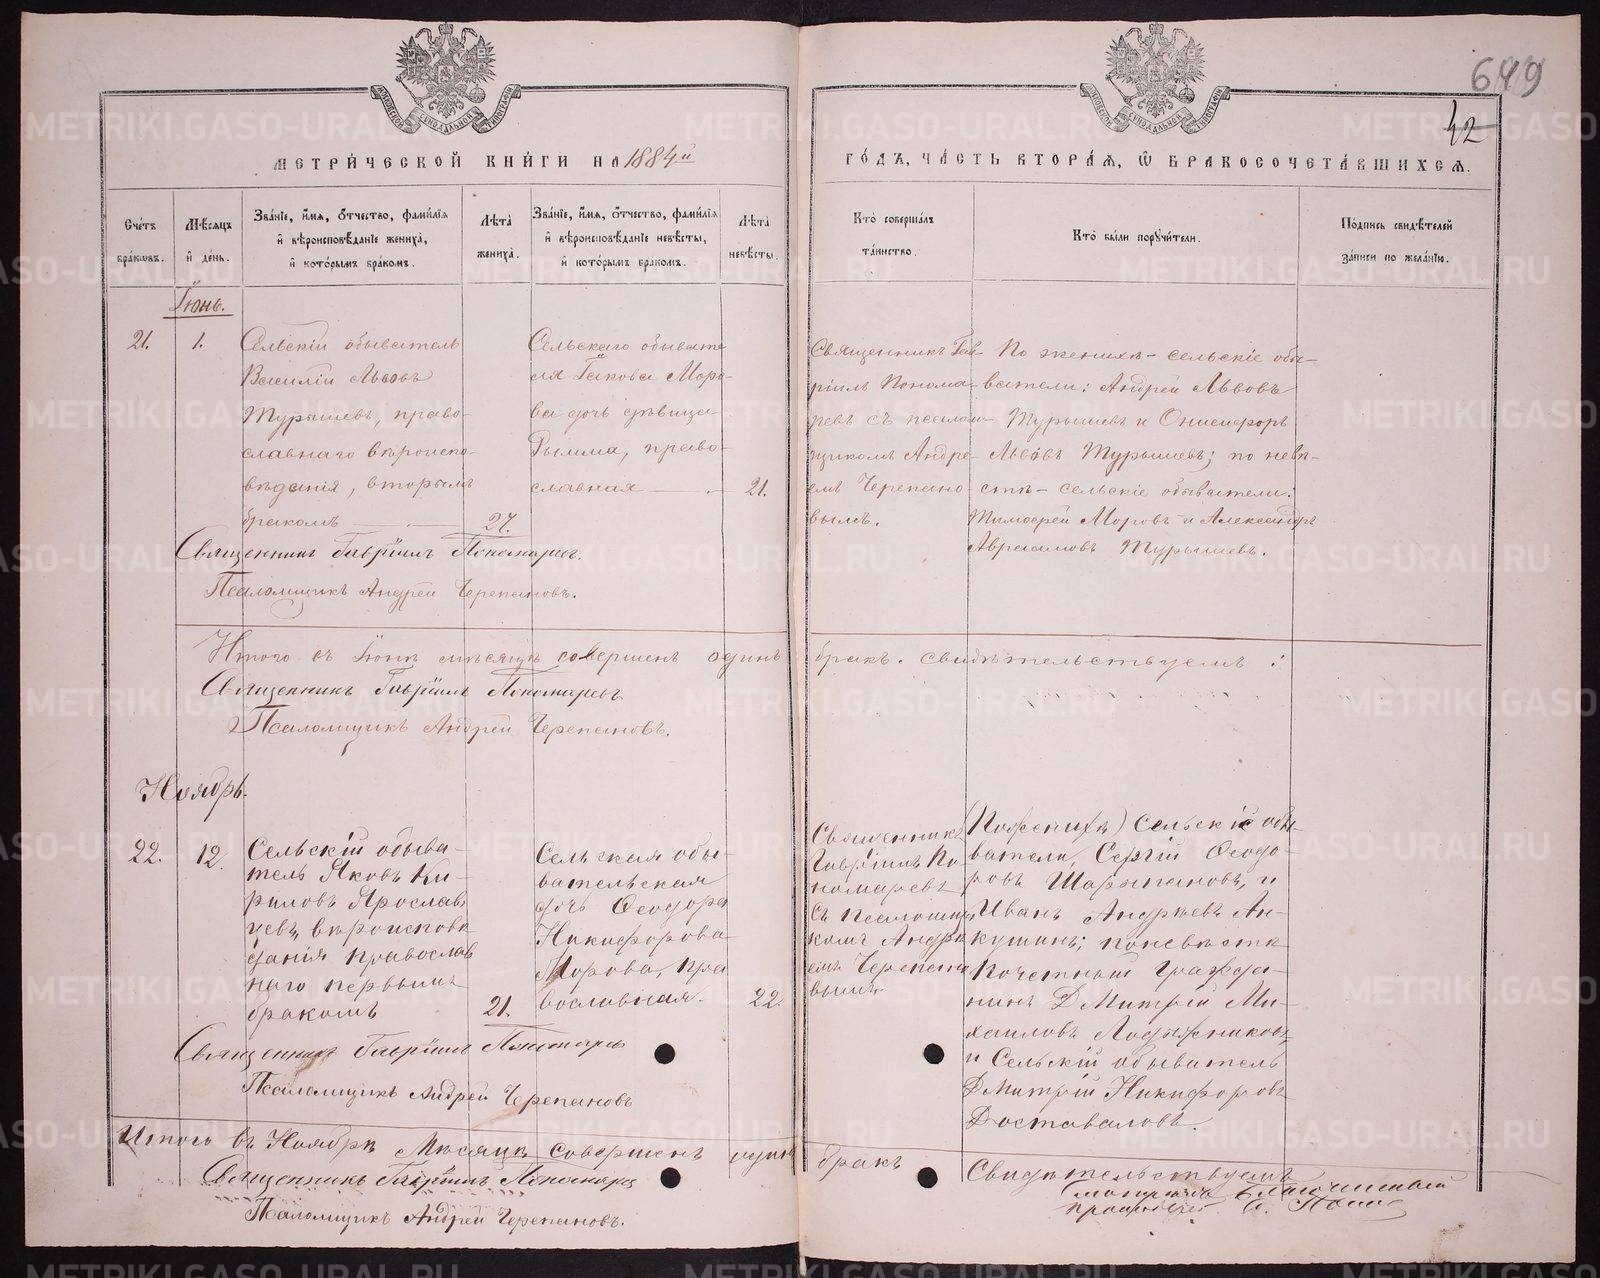 649
42
МЕТРИЧЕСКОЙ КНИГИ НА 1884й
ГОДЪ, ЧАСТЬ ВТОРАЯ, Ѿ БРАКОСОЧЕТАВШИХСЯ.
Счетъ браковъ.
Мѣсяцъ и день.
Званіе, имя, отчество, фамилія и вѣроисповѣданіе жениха, и которымъ бракомъ.
Лѣта жениха.
Званіе, имя, отчество, фамилія и вѣроисповѣданіе невѣсты, и которымъ бракомъ.
Лѣта невѣсты.
Кто совершалъ таинство.
Кто были поручители.
Подпись свидѣтелей записи по желанію.
Іюнь.
21.
1.
Сельскій обыватель
Василій Львовъ
Турышевъ, право-
славнаго вѣроиспо-
вѣданія, вторымъ
бракомъ
27.
Сельскаго обывате
ля Іакова Моро-
ва дочь дѣвица
Римма, право-
славная
21.
Священникъ Гав-
ріилъ Понома-
ревъ съ псалом-
щикомъ Андре-
емъ Черепано
вымъ.
По женихѣ - сельскіе обы-
ватели: Андрей Львовъ
Турышевъ и Онисифоръ
Львовъ Турышевъ; по невѣ-
стѣ - сельскіе обыватели:
Тимофей Моровъ и Александръ
Авраамовъ Турышевъ.
Священникъ Гавріилъ Пономаревъ.
Псаломщикъ Андрей Черепановъ.
Итого въ Іюнѣ мѣсяцѣ совершенъ одинъ бракъ. свидѣтельствуемъ:
Священникъ Гавріилъ Пономаревъ
Псаломщикъ Андрей Черепановъ.
Ноябрь.
22.
12.
Сельскій обыва-
тель Яковъ Ки-
риловъ Ярослав
цевъ, вѣроисповѣ
данія православ
наго первымъ
бракомъ
21.
Сельская обы-
вательская
дочь Ѳеодора
Никифорова
Морова, пра
вославная.
22.
Священникъ
Гавріилъ По
номаревъ
съ псаломщи
комъ Андре
емъ Черепано
вымъ
(По женихѣ) Сельскіе обы-
ватели, Сергій Ѳеодо-
ровъ Шарыпановъ, и
Иванъ Андреевъ Ан-
кушинъ; по невѣстѣ
Почетный гражда-
нинъ Дмитрій Ми-
хаиловъ Лодыжниковъ,
и Сельскій обыватель
Дмитрій Никифоровъ
Доставаловъ.
Священникъ Гавріилъ Пономаревъ
Псаломщикъ Андрей Черепановъ
Итого въ Ноябрѣ Мѣсяцѣ совершенъ одинъ бракъ Свидѣтельствуемъ
Священникъ Гавріилъ Пономаревъ
Псаломщикъ Андрей Черепановъ.
Благочинный
METRIKI.GASO-URAL.RU